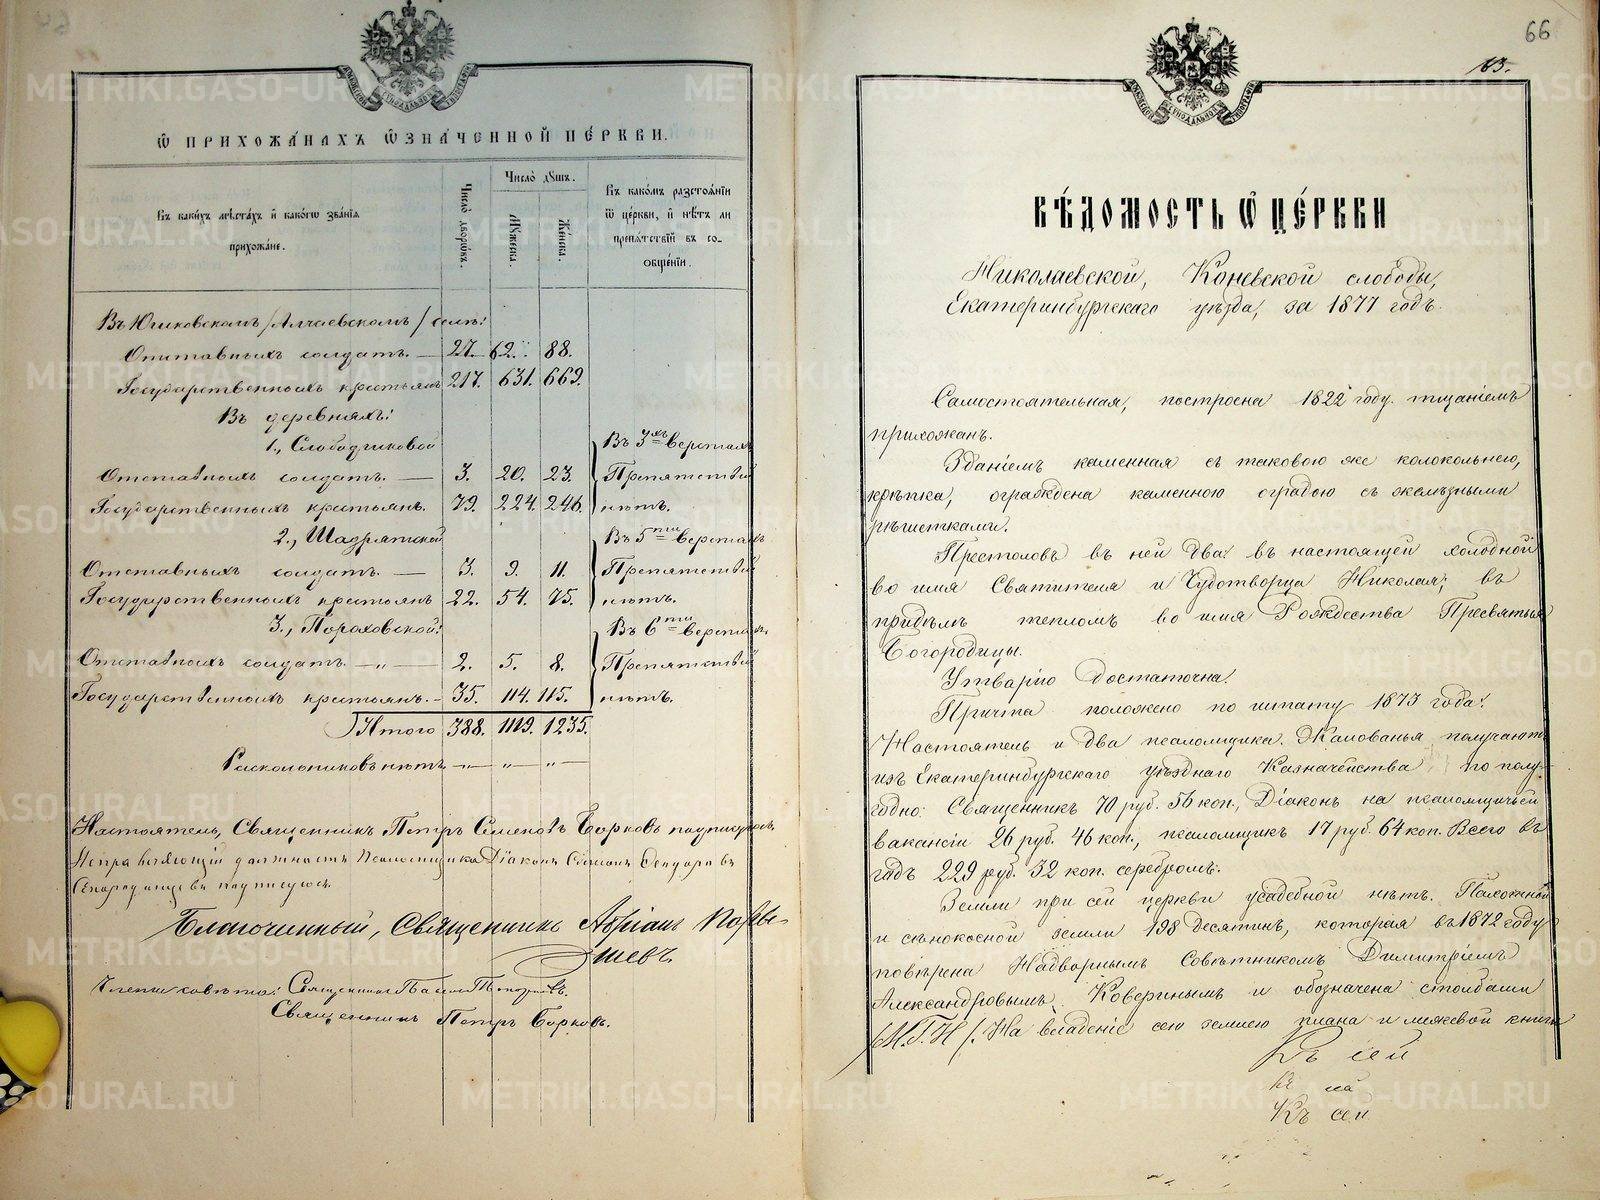 Ѿ ПРИХОЖА́НАХЪ Ѡ҆ЗНА́ЧЕННОЙ ЦЕ́РКВИ.
Въ каки́хъ мѣста́хъ и҆ како́гѡ зва́нїѧ прихожа́не.
Число̀ дворѡ́въ.
Число̀ дꙋ́шъ.
Мꙋ́жеска.
Же́нска.
Въ како́мъ разстоѧ́нїи
ѿ це́ркви, и҆ нѣ́тъ ли
препѧ́тствїй въ со-
ѻбще́нїи.
Въ Юшковскомъ /Алчаевскомъ/ селѣ:
Отставныхъ солдатъ. — 27. 62. 88.
Государственныхъ крестьянъ 217. 631. 669.
Въ деревняхъ:
1., Слободчиковой Въ 3хъ верстахъ
Отставныхъ солдатъ. — 3. 20. 23. Препятствiй
Государственныхъ крестьянъ. 79. 224. 246. нѣтъ.
2., Въ 5ти верстахъ
Отставныхъ солдатъ. — 3. 9. 11. Препятствiй
Государственныхъ крестьянъ 22. 54. 75. нѣтъ.
3., Пороховской: Въ 6ти верстахъ
Отставныхъ солдатъ. —„— 2. 5. 8. Препятствiй
Государственныхъ крестьянъ. — 35. 114. 115. нѣтъ.
Итого 388. 1119. 1235.
Раскольниковъ нѣтъ —„— „ —„—
Настоятель, Священникъ Петръ Семеновъ Борковъ подписуюсь.
должность Псаломщика Дiаконъ
подписуюсь.
Благочинный, Священникъ Адрiанъ
Члены совѣта: Священникъ
Священникъ Петръ Борковъ.
66
63.
ВѢ́ДОМОСТЬ Ѿ ЦЕ́РКВИ
Николаевской, Коневской слободы,
Екатеринбургскаго уѣзда, за 1877 годъ.
Самостоятельная, построена 1822 году. тщанiемъ
прихожанъ.
Зданiемъ каменная съ таковою же колокольнею,
крѣпка, ограждена каменною оградою съ желѣзными
рѣшетками.
Престоловъ въ ней два: въ настоящей холодной
во имя Святителя и Чудотворца Николая; въ
придѣлѣ тепломъ во имя Рождества Пресвятыя
Богородицы.
Утварiю достаточна.
Причта положено по штату 1873 года:
Настоятель и два псаломщика. Жалованья получаютъ
изъ Екатеринбургскаго уѣзднаго Казначейства по полу-
годно: Священникъ 70 руб. 56 коп., Дiаконъ на псаломщичьей
вакансiи 26 руб. 46 коп., псаломщикъ 17 руб. 64 коп. Всего въ
годъ 229 руб. 32 коп. серебромъ.
Земли при сей церкви усадебной нѣтъ. Пахотной
и сѣнокосной земли 198 десятинъ, которая въ 1872 году
повѣрена Надворнымъ Совѣтникомъ Димитрiемъ
Александровымъ Коверинымъ и обозначена столбами
/М.Г.Н/. На владѣнiе сею землею плана и межевой книги
Къ сей
Къ сей